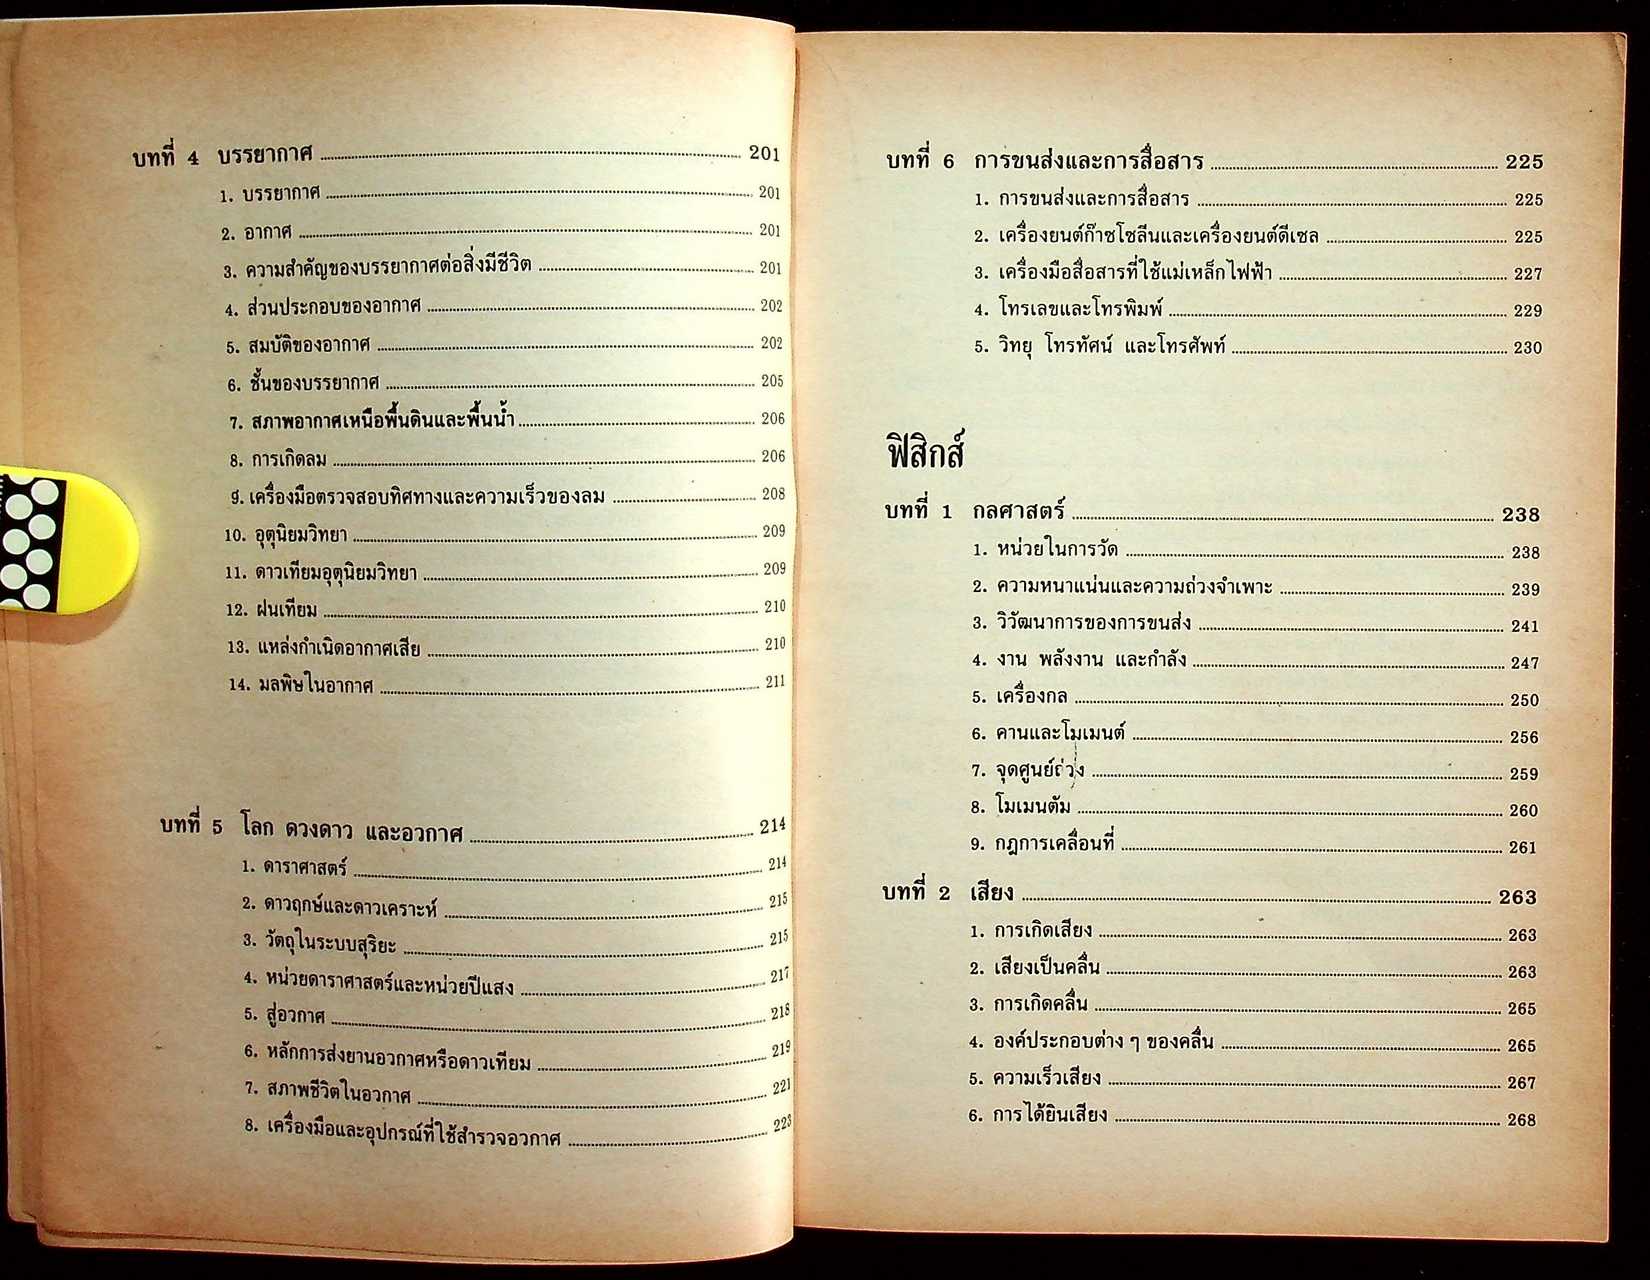 บทที่ 4 บรรยากาศ ........ 201
1. บรรยากาศ ........ 201
2. อากาศ ........ 201
3. ความสำคัญของบรรยากาศต่อสิ่งมีชีวิต ........ 201
4. ส่วนประกอบของอากาศ ........ 202
5. สมบัติของอากาศ ........ 202
6. ชั้นของบรรยากาศ ........ 205
7. สภาพอากาศเหนือพื้นดินและพื้นน้ำ ........ 206
8. การเกิดลม ........ 206
9. เครื่องมือตรวจสอบทิศทางและความเร็วของลม ........ 208
10. อุตุนิยมวิทยา ........ 209
11. ดาวเทียมอุตุนิยมวิทยา ........ 209
12. ฝนเทียม ........ 210
13. แหล่งกำเนิดอากาศเสีย ........ 210
14. มลพิษในอากาศ ........ 211
บทที่ 5 โลก ดวงดาว และอวกาศ ........ 214
1. ดาราศาสตร์ ........ 214
2. ดาวฤกษ์และดาวเคราะห์ ........ 215
3. วัตถุในระบบสุริยะ ........ 215
4. หน่วยดาราศาสตร์และหน่วยปีแสง ........ 217
5. สู่อวกาศ ........ 218
6. หลักการส่งยานอวกาศหรือดาวเทียม ........ 219
7. สภาพชีวิตในอวกาศ ........ 221
8. เครื่องมือและอุปกรณ์ที่ใช้สำรวจอวกาศ ........ 223
บทที่ 6 การขนส่งและการสื่อสาร ........ 225
1. การขนส่งและการสื่อสาร ........ 225
2. เครื่องยนต์ก๊าซโซลีนและเครื่องยนต์ดีเซล ........ 225
3. เครื่องมือสื่อสารที่ใช้แม่เหล็กไฟฟ้า ........ 227
4. โทรเลขและโทรพิมพ์ ........ 229
5. วิทยุ โทรทัศน์ และโทรศัพท์ ........ 230
ฟิสิกส์
บทที่ 1 กลศาสตร์ ........ 238
1. หน่วยในการวัด ........ 238
2. ความหนาแน่นและความถ่วงจำเพาะ ........ 239
3. วิวัฒนาการของการขนส่ง ........ 241
4. งาน พลังงาน และกำลัง ........ 247
5. เครื่องกล ........ 250
6. คานและโมเมนต์ ........ 256
7. จุดศูนย์ถ่วง ........ 259
8. โมเมนตัม ........ 260
9. กฎการเคลื่อนที่ ........ 261
บทที่ 2 เสียง ........ 263
1. การเกิดเสียง ........ 263
2. เสียงเป็นคลื่น ........ 263
3. การเกิดคลื่น ........ 265
4. องค์ประกอบต่าง ๆ ของคลื่น ........ 265
5. ความเร็วเสียง ........ 267
6. การได้ยินเสียง ........ 268